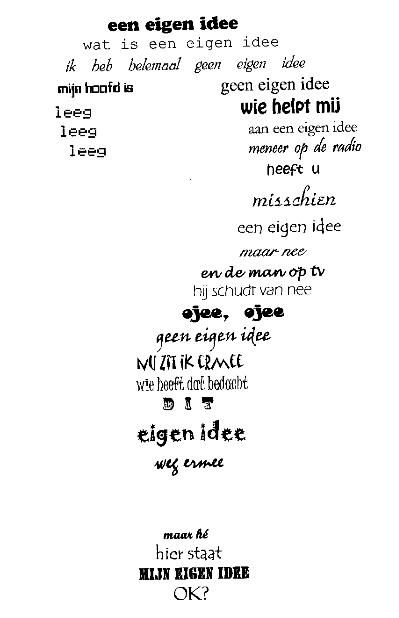 een eigen idee
wat is een eigen idee
ik heb helemaal geen eigen idee
mijn hoofd is
leeg
leeg
leeg
geen eigen idee
wie helpt mij
aan een eigen idee
meneer op de radio
heeft u
misschien
een eigen idee
maar nee
en de man op tv
hij schudt van nee
ojee, ojee
geen eigen idee
NU ZIT IK ERMEE
wie heeft dat bedacht
DIT
eigen idee
weg ermee
maar hé
hier staat
MIJN EIGEN IDEE
OK?